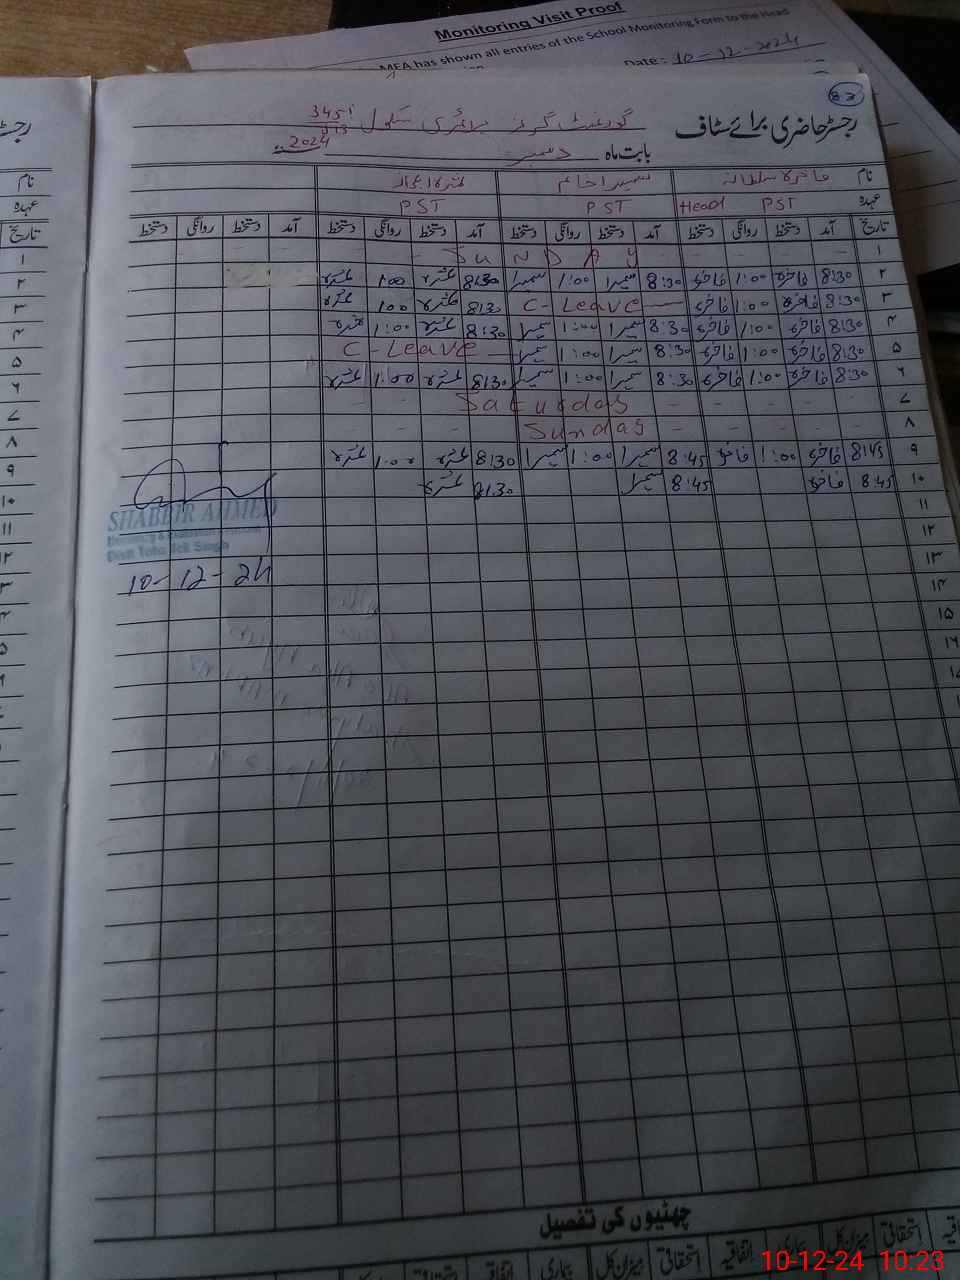 Monitoring Visit Proof
MEA has shown all entries of the School Monitoring Form to the Head
Date: 10-12-2024
83
رجسٹر حاضری برائے سٹاف
گورنمنٹ گرلز پرائمری سکول 345
بابت ماہ دسمبر 2024
نام فاخرہ سلطانہ سمیرا خانم
عہدہ Head PST PST PST
تاریخ آمد دستخط روانگی دستخط آمد دستخط روانگی دستخط آمد دستخط روانگی دستخط آمد دستخط روانگی دستخط
۱ SUNDAY
۲ 8:30 فاخرہ 1:00 فاخرہ 8:30 سمیرا 1:00 سمیرا 8:30 عشرہ 1:00 عشرہ
۳ 8:30 فاخرہ 1:00 فاخرہ C-Leave 8:30 عشرہ 1:00 عشرہ
۴ 8:30 فاخرہ 1:00 فاخرہ 8:30 سمیرا 1:00 سمیرا 8:30 عشرہ 1:00 عشرہ
۵ 8:30 فاخرہ 1:00 فاخرہ 8:30 سمیرا 1:00 سمیرا C-Leave
۶ 8:30 فاخرہ 1:00 فاخرہ 8:30 سمیرا 1:00 سمیرا 8:30 عشرہ 1:00 عشرہ
۷ Saturday
۸ Sunday
۹ 8:45 فاخرہ 1:00 فاخرہ 8:45 سمیرا 1:00 سمیرا 8:30 عشرہ 1:00 عشرہ
۱۰ 8:45 فاخرہ 8:45 سمیرا 8:30 عشرہ
۱۱
۱۲
۱۳
۱۴
۱۵
۱۶
SHABBIR AHMED
Distt Toba Tek Singh
10-12-24
چھٹیوں کی تفصیل
استحقاقی میزان کل بیماری اتفاقیہ استحقاقی میزان کل بیماری اتفاقیہ استحقاقی میزان کل
10-12-24 10:23